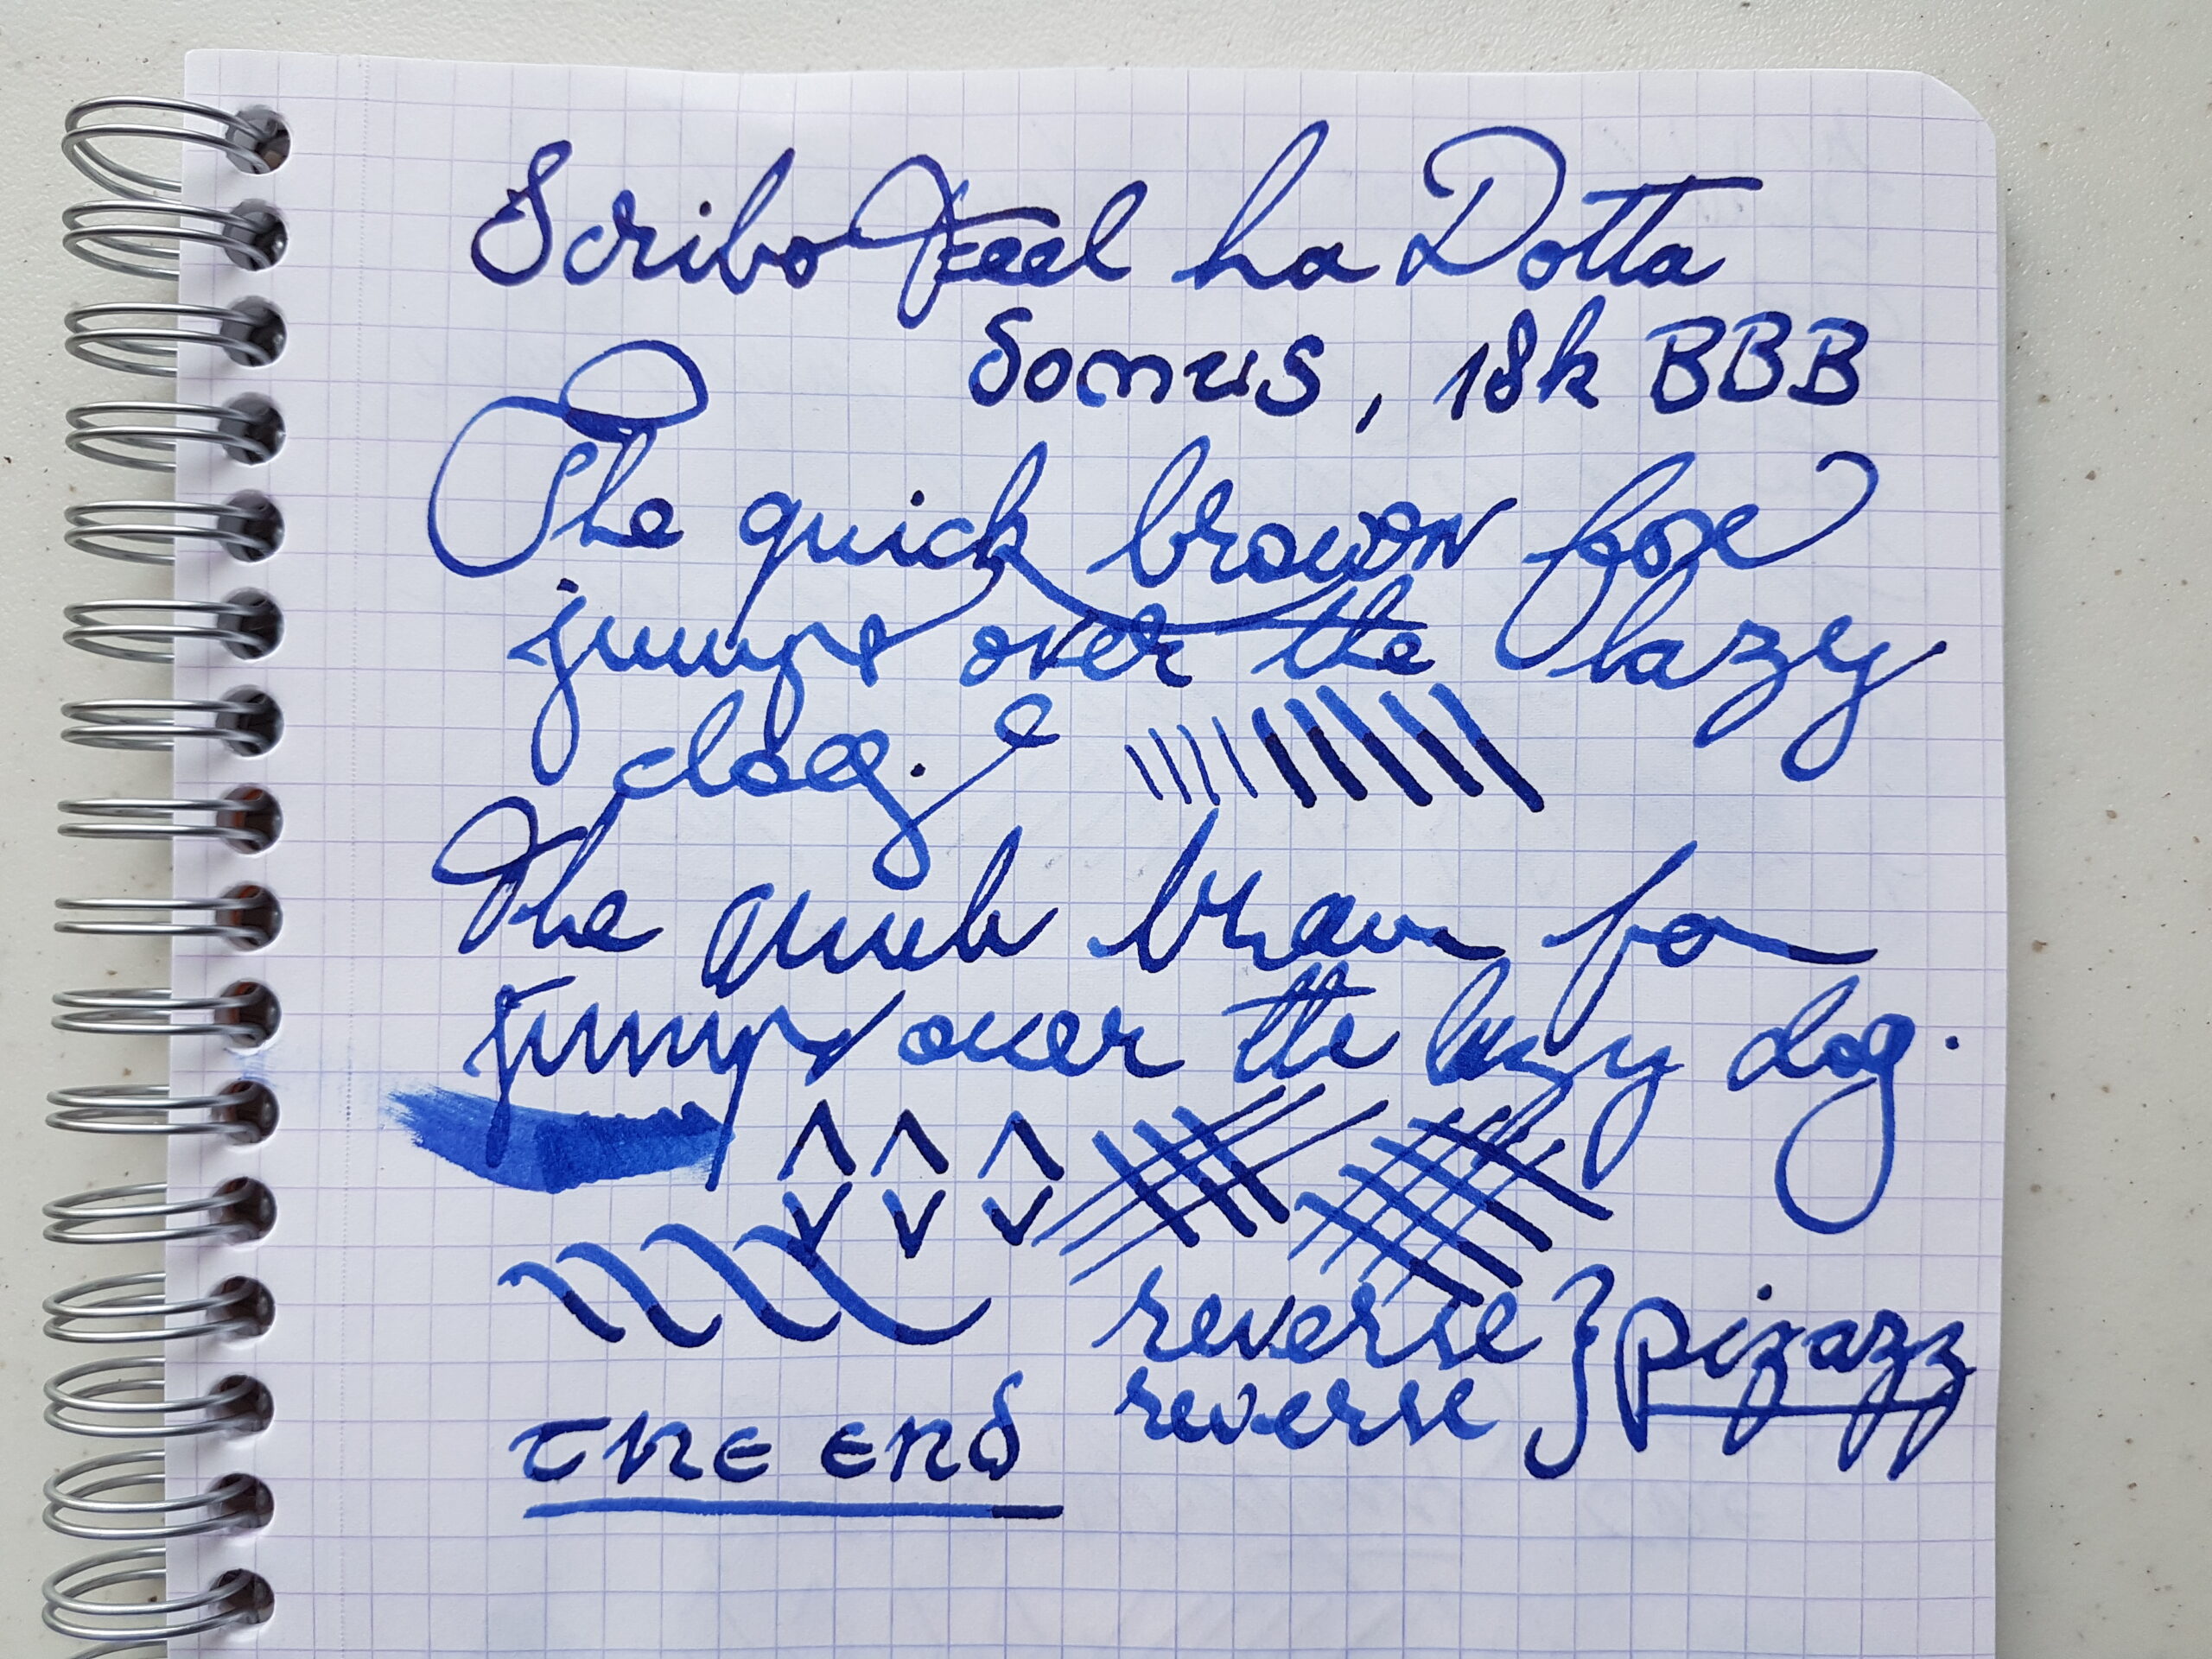 Scribo Feel La Dotta
Somus, 18k BBB
The quick brown fox
jumps over the lazy
dog.
The quick brown fox
jumps over the lazy dog.
reverse } pizazz
reverse
THE END